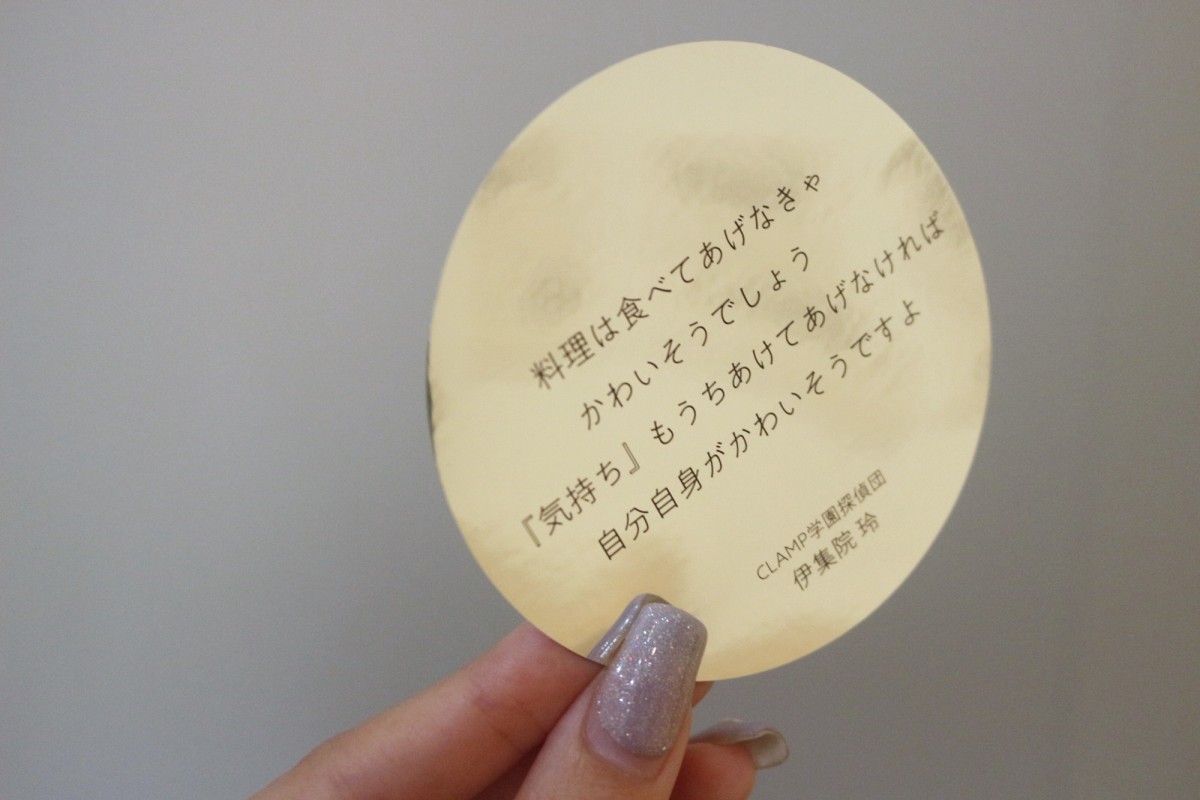 料理は食べてあげなきゃ
かわいそうでしょう
『気持ち』もうちあけてあげなければ
自分自身がかわいそうですよ
CLAMP学園探偵団
伊集院 玲